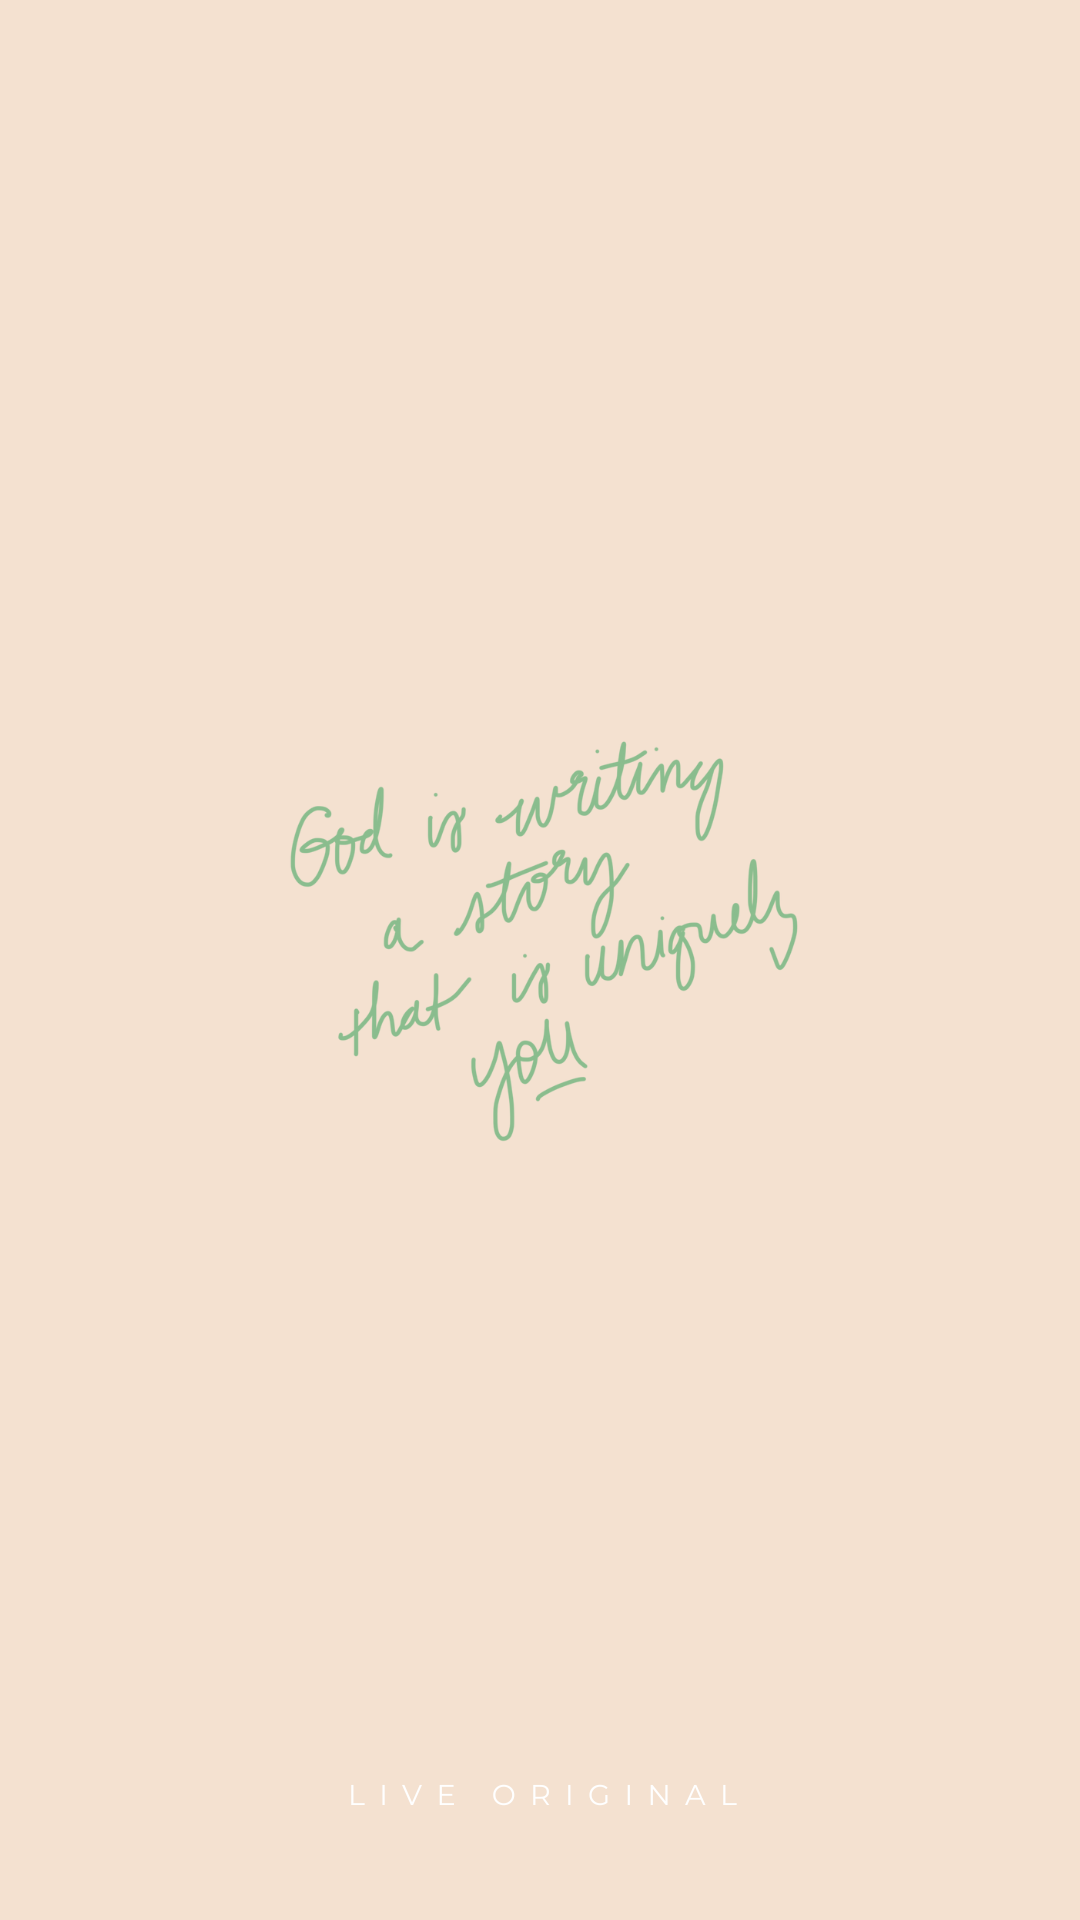 God is writing
a story
that is uniquely
you
LIVE ORIGINAL